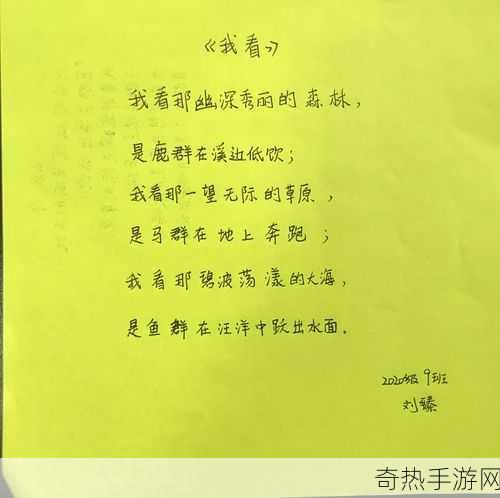 《我看》
我看那幽深秀丽的森林，
是鹿群在溪边低饮；
我看那一望无际的草原，
是马群在地上奔跑；
我看那碧波荡漾的大海，
是鱼群在汪洋中跃出水面．
2020级 9班
刘臻
奇热手游网